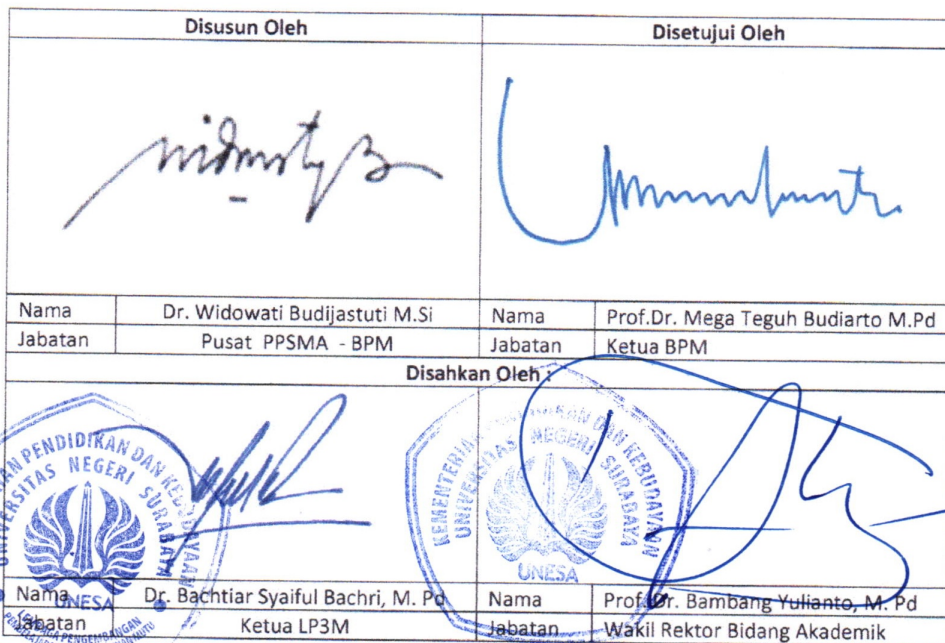 Disusun Oleh
Disetujui Oleh
Nama Dr. Widowati Budijastuti M.Si Nama Prof.Dr. Mega Teguh Budiarto M.Pd
Jabatan Pusat PPSMA - BPM Jabatan Ketua BPM
Disahkan Oleh :
PENDIDIKAN DAN
UNIVERSITAS NEGERI SURABAYA
UNESA
DAN KEBUDAYAAN
UNIVERSITAS NEGERI SURABAYA
UNESA
Nama Dr. Bachtiar Syaiful Bachri, M. Pd Nama Prof. Dr. Bambang Yulianto, M. Pd
Jabatan Ketua LP3M Jabatan Wakil Rektor Bidang Akademik